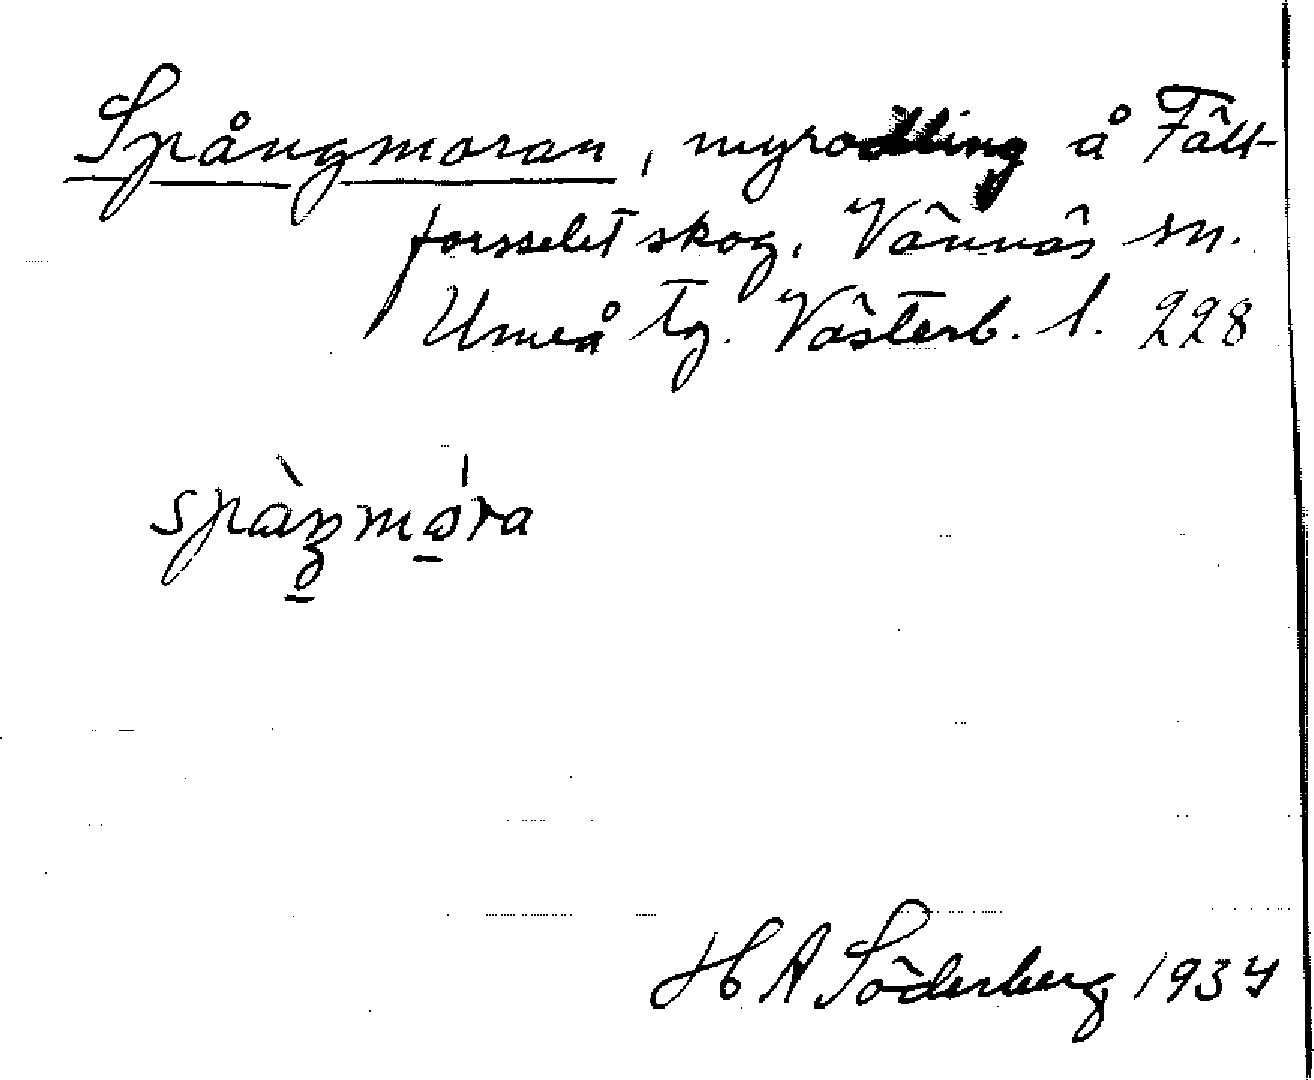 Spångmoran, myrodling å Fält-
forsselet skog, Vännäs sn.
Umeå tg. Västerb. l. 228
H A Söderberg 1934